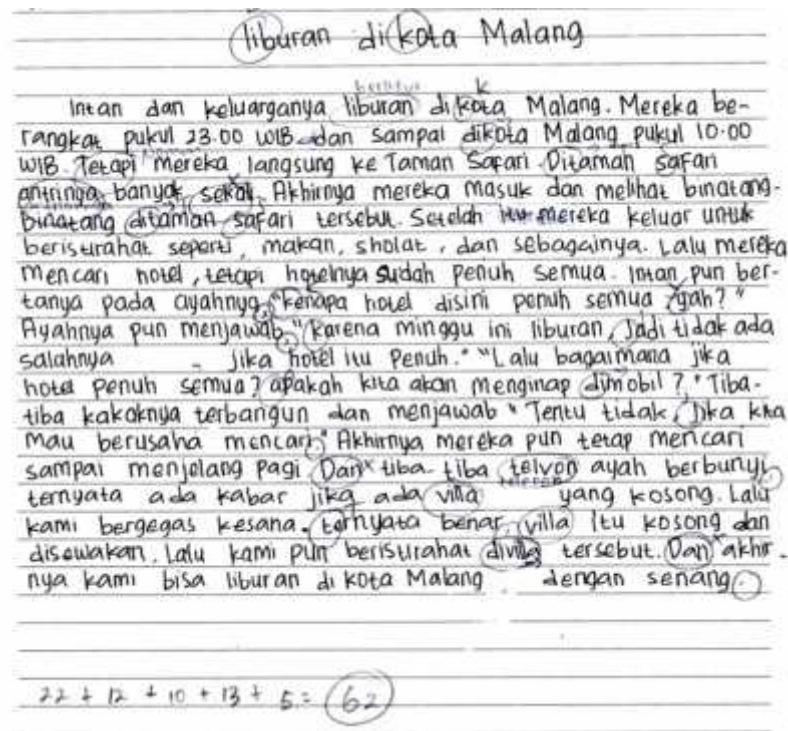 liburan di kota Malang
berlibur k
Intan dan keluarganya liburan di kota Malang. Mereka be-
rangkat pukul 23.00 WIB dan sampai dikota Malang pukul 10.00
WIB. Tetapi mereka langsung ke Taman Safari. Ditamah safari
antringa banyak sekali. Akhirnya mereka masuk dan melihat binatang-
binatang ditaman safari tersebut. Setelah itu mereka keluar untuk
beristirahat seperti, makan, sholat, dan sebagainya. Lalu mereka
mencari hotel, tetapi hotelnya sudah penuh semua. Intan pun ber-
tanya pada ayahnya, "kenapa hotel disini penuh semua yah?"
Ayahnya pun menjawab, "karena minggu ini liburan, Jadi tidak ada
salahnya jika hotel itu penuh." "Lalu bagaimana jika
hotel penuh semua? apakah kita akan menginap dimobil?" Tiba-
tiba kakaknya terbangun dan menjawab "Tentu tidak, Jika kita
mau berusaha mencari." Akhirnya mereka pun tetap mencari
sampai menjelang pagi. Dan tiba-tiba telvon ayah berbunyi
telefon
ternyata ada kabar jika ada villa yang kosong. Lalu
kami bergegas kesana. ternyata benar, villa itu kosong dan
disewakan. Lalu kami pun beristirahat divilla tersebut. Dan akhir-
nya kami bisa liburan di kota Malang dengan senang.
22 + 12 + 10 + 13 + 5 = 62